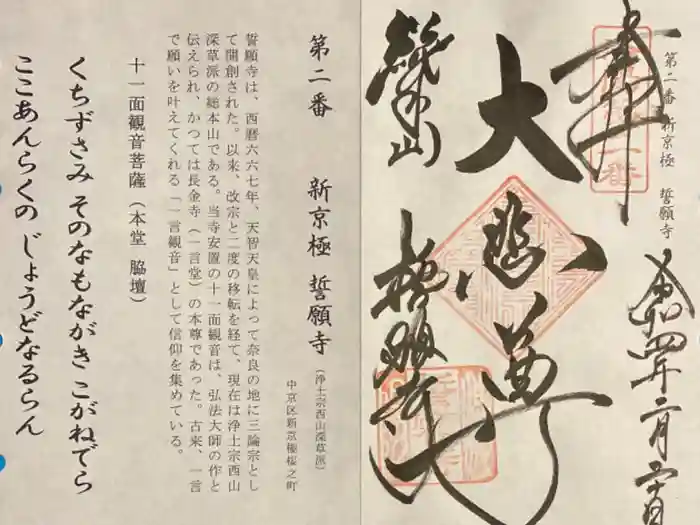 第二番 新京極 誓願寺
大悲尊
誓願寺
第二番 新京極 誓願寺(浄土宗西山深草派)
中京区新京極桜之町
誓願寺は、西暦六六七年、天智天皇によって奈良の地に三論宗とし
て開創された。以来、改宗と二度の移転を経て、現在は浄土宗西山
深草派の総本山である。当寺安置の十一面観音は、弘法大師の作と
伝えられ、かつては長金寺(一言堂)の本尊であった。古来、一言
で願いを叶えてくれる「一言観音」として信仰を集めている。
十一面観音菩薩(本堂 脇壇)
くちずさみ そのなもながき こがねでら
ここあんらくの じょうどなるらん